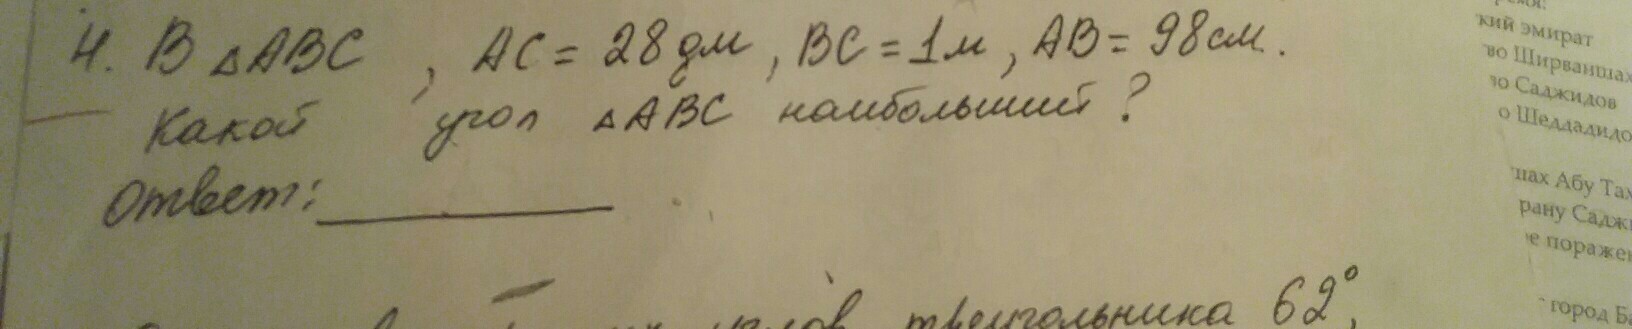 4. В △ABC , AC = 28 дм , BC = 1 м , AB = 98 см .
Какой угол △ABC наибольший ?
Ответ:
треугольника 62°,
кий эмират
во Ширваншах
во Саджидов
о Шеддадидо
шах Абу Тах
рану Саджи
е поражен
город Ба